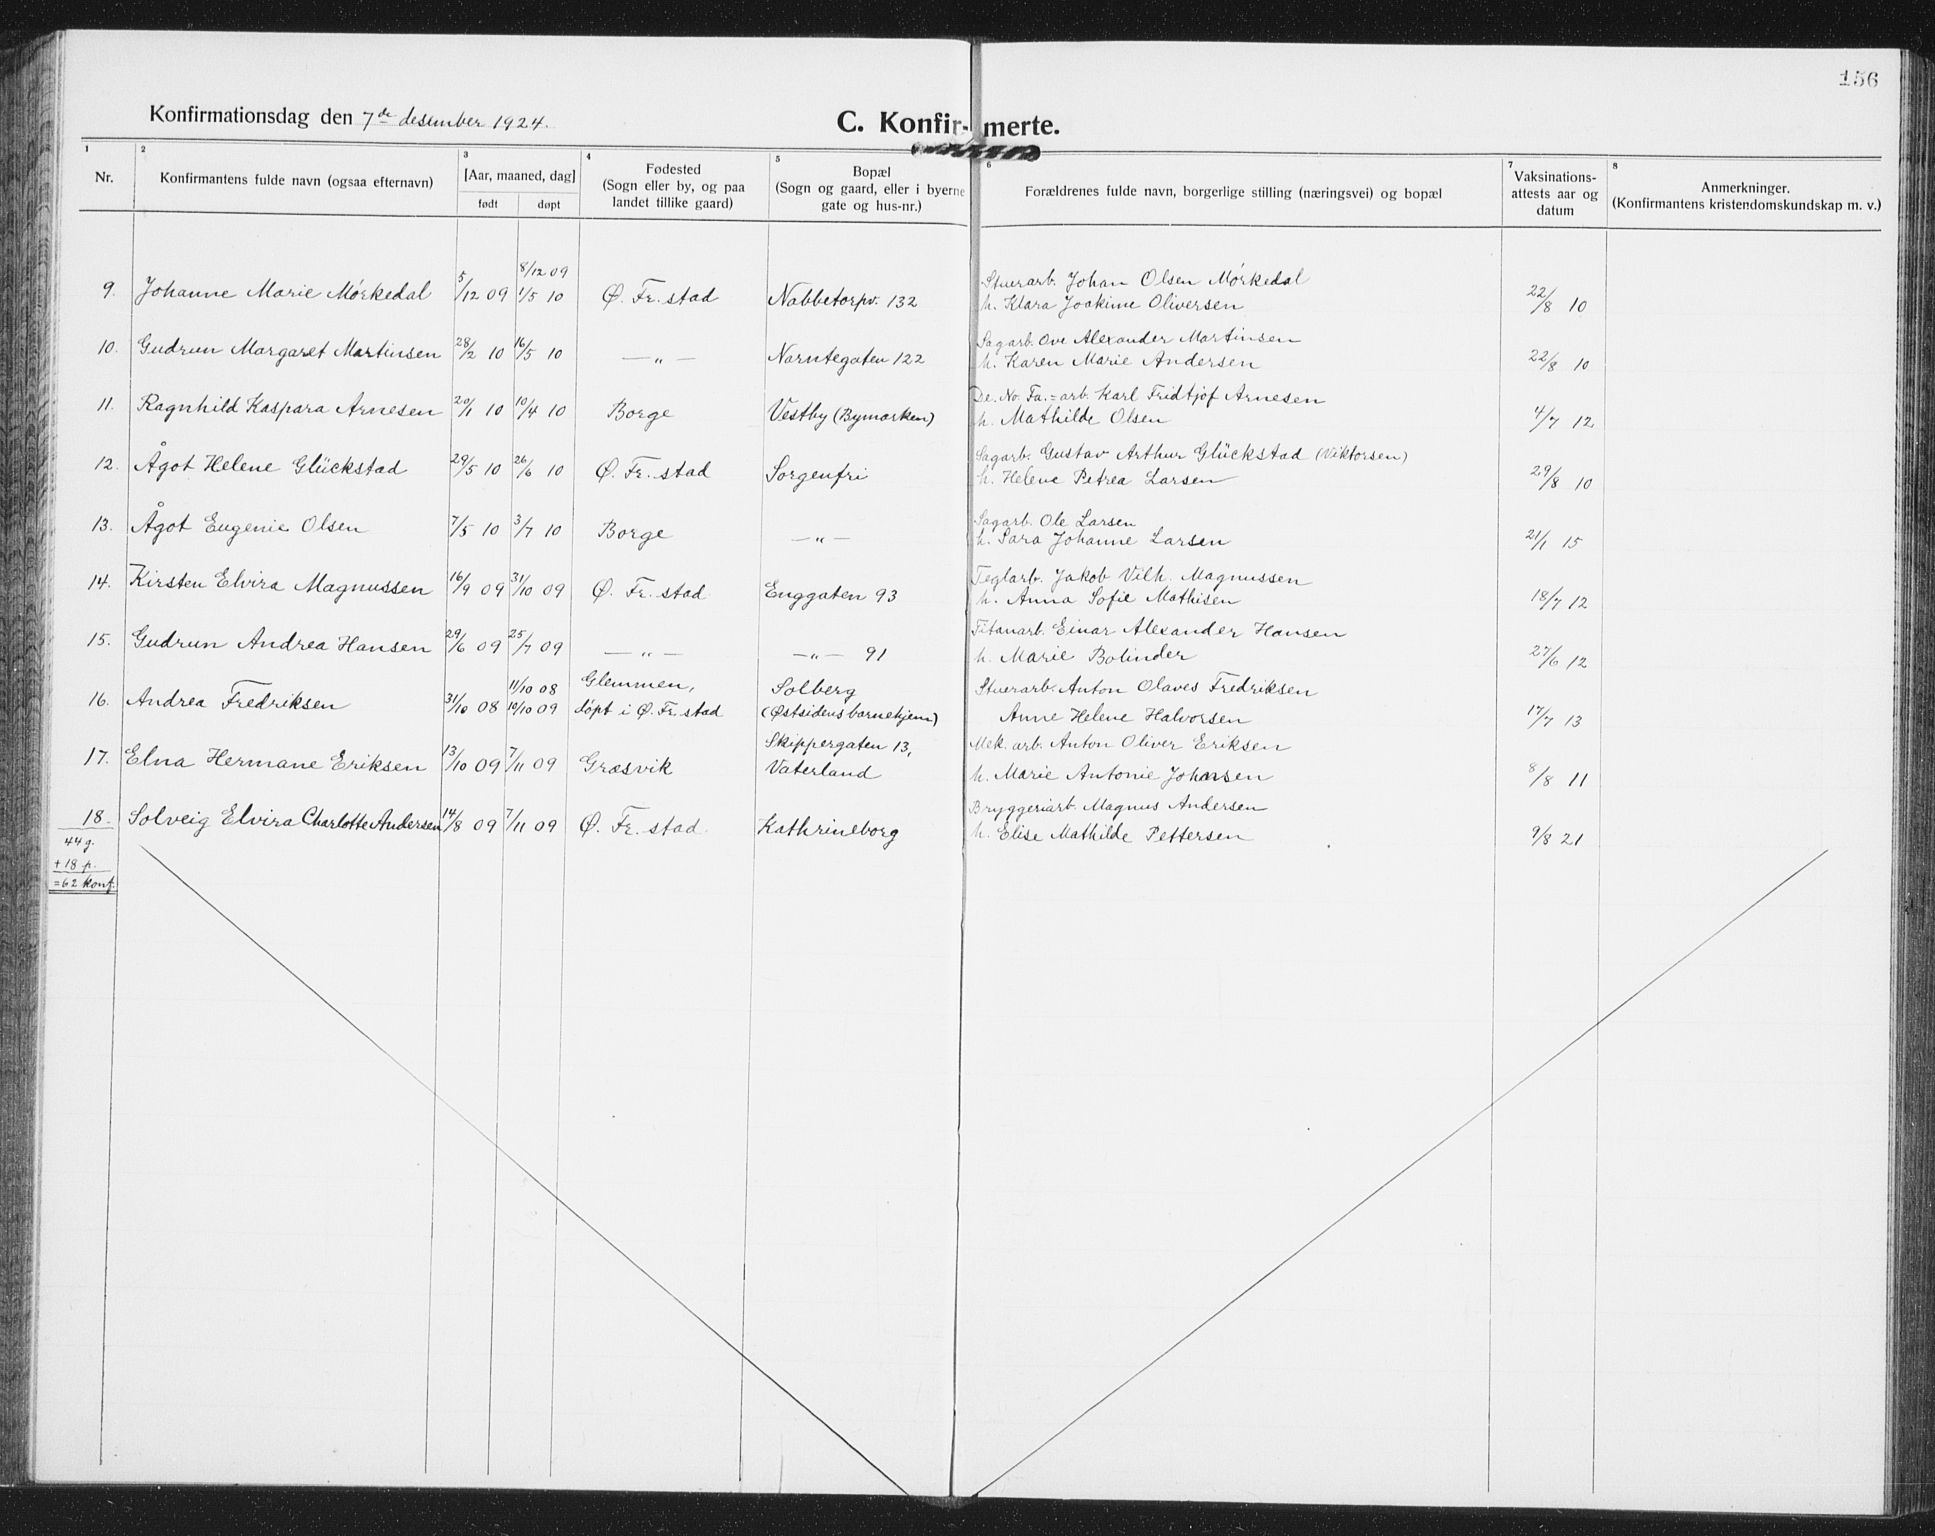 156
Konfirmationsdag den 7de desember 1924.
C. Konfir- merte.
1 2 3 4 5 6 7 8
Nr.
Konfirmantens fulde navn (ogsaa efternavn)
[Aar, maaned, dag]
født døpt
Fødested
(Sogn eller by, og paa
landet tillike gaard)
Bopæl
(Sogn og gaard, eller i byerne
gate og hus-nr.)
Forældrenes fulde navn, borgerlige stilling (næringsvei) og bopæl
Vaksinations-
attests aar og
datum
Anmerkninger.
(Konfirmantens kristendomskundskap m. v.)
8/12 09 Stuerarb. Johan Olsen Mörkedal
9. Johanne Marie Mörkedal 5/12 09 1/5 10 Ø. Fr. stad Nabbetorpv. 132 h. Klara Joakime Oliversen 22/8 10
Sagarb. Ove Alexander Martinsen
10. Gudrun Margaret Martinsen 28/2 10 16/5 10 — " — Narntegaten 122 h. Karen Marie Andersen 22/8 10
De. No. Fa.=arb. Karl Fridtjof Arnesen
11. Ragnhild Kaspara Arnesen 20/1 10 10/4 10 Borge Vestby (Bymarken) h. Mathilde Olsen 4/7 12
Sagarb. Gustav Arthur Glückstad (Viktorsen)
12. Ågot Helene Glückstad 29/5 10 26/6 10 Ø. Fr. stad Sorgenfri h. Helene Petrea Larsen 29/8 10
Sagarb. Ole Larsen
13. Ågot Eugenie Olsen 7/5 10 3/7 10 Borge — " — h. Sara Johanne Larsen 21/1 15
Teglarb. Jakob Vilh. Magnussen
14. Kirsten Elvira Magnussen 16/9 09 31/10 09 Ø. Fr. stad Enggaten 93 h. Anna Sofie Mathisen 18/7 12
Titanarb. Einar Alexander Hansen
15. Gudrun Andrea Hansen 29/6 09 25/7 09 — " — — " — 91 h. Marie Bolinder 27/6 12
11/10 08 Glemmen, Solberg Stuerarb. Anton Olaves Fredriksen
16. Andrea Fredriksen 31/10 08 10/10 09 döpt i Ø. Fr. stad (Østsidens barnehjem) Anne Helene Halvorsen 17/7 13
Skippergaten 13, Mek. arb. Anton Oliver Eriksen
17. Elna Hermane Eriksen 13/10 09 7/11 09 Græsvik Vaterland h. Marie Antonie Johnsen 8/8 11
Bryggeriarb. Magnus Andersen
18. Solveig Elvira Charlotte Andersen 14/8 09 7/11 09 Ø. Fr. stad. Kathrineborg h. Elise Mathilde Pettersen 9/8 21
44 g.
+ 18 p.
= 62 konf.